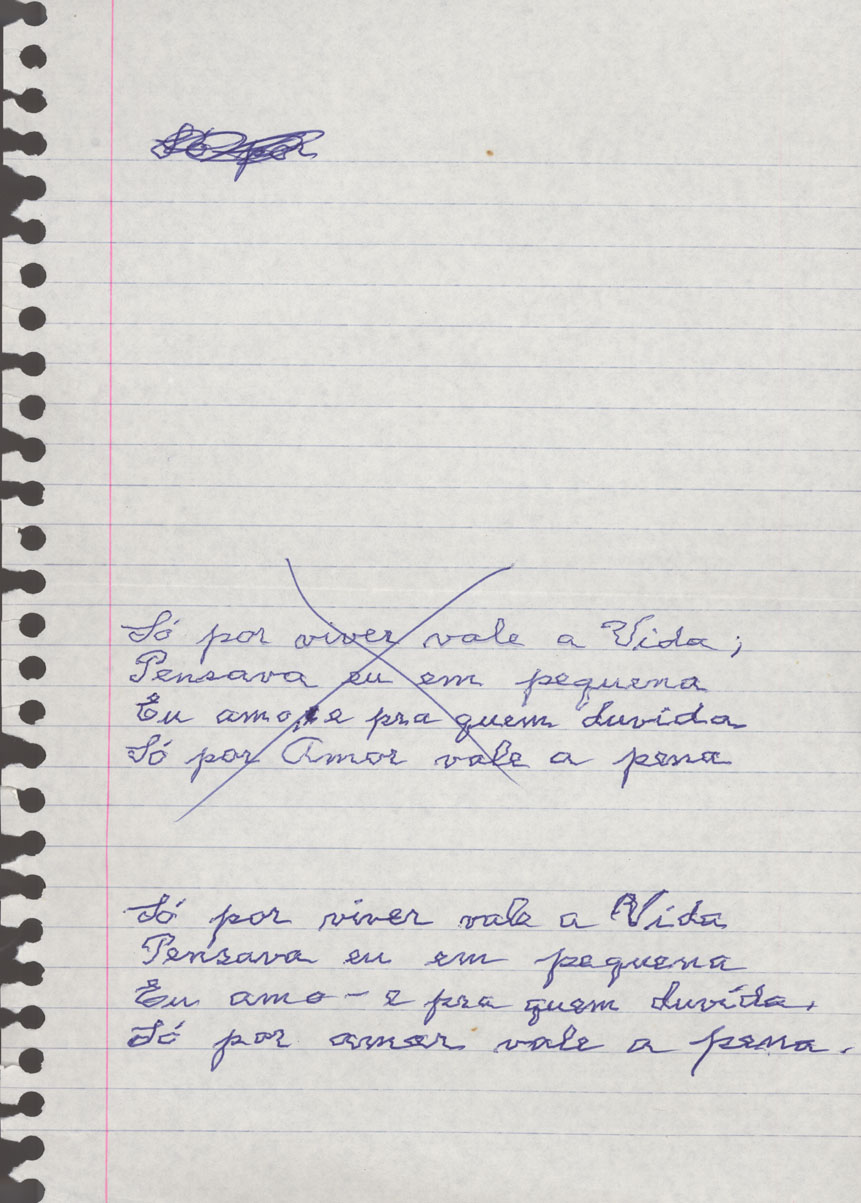 Só por
Só por viver vale a Vida;
Pensava eu em pequena
Eu amo, e pra quem duvida
Só por Amor vale a pena
Só por viver vale a Vida
Pensava eu em pequena
Eu amo - e pra quem duvida.
Só por amor vale a pena.